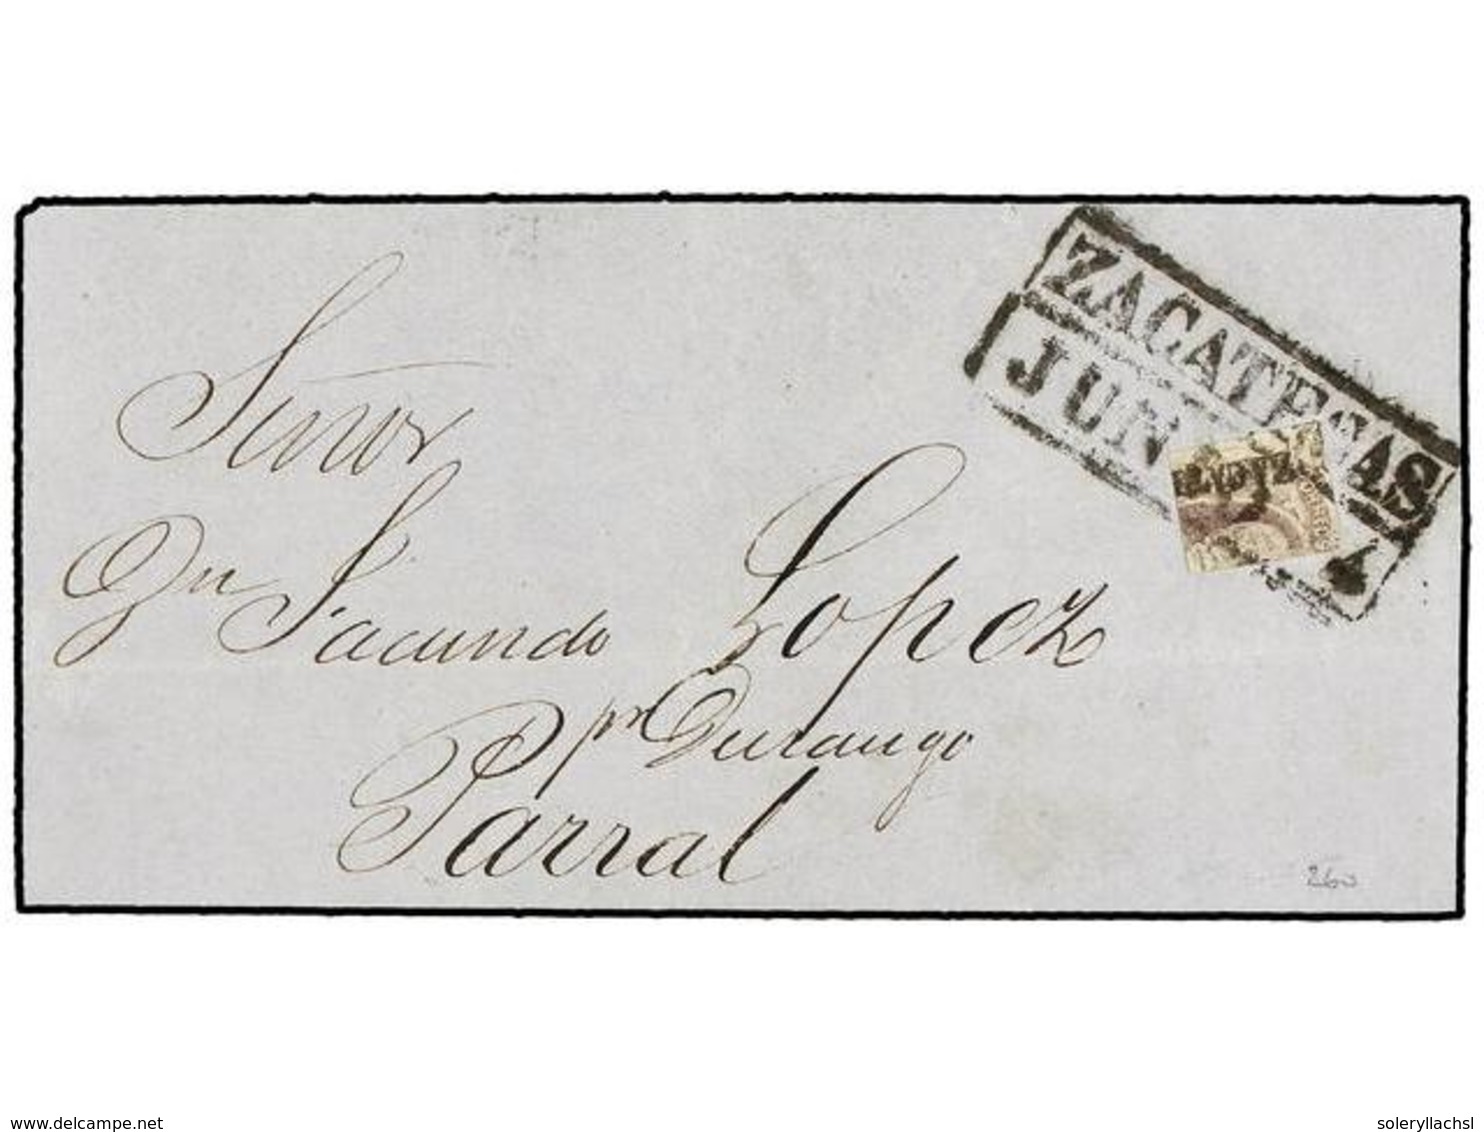 ZACATECAS
JUN 4
ZACAT
Señor
Dn Facundo Lopez
pr Durango
Parral
260
delcampe.net
soleryllachsl